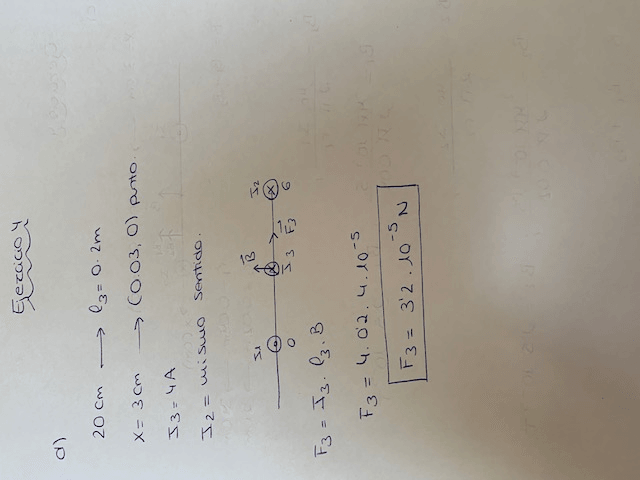 Ejercicio 4
d)
20 cm → l3 = 0.2m
X = 3 cm → (0.03, 0) punto.
I3 = 4A
I2 = mismo sentido.
I1 B I2
0 I3 F3 6
F3 = I3 · l3 · B
F3 = 4 · 0'2 · 4 · 10^-5
F3 = 3'2 · 10^-5 N